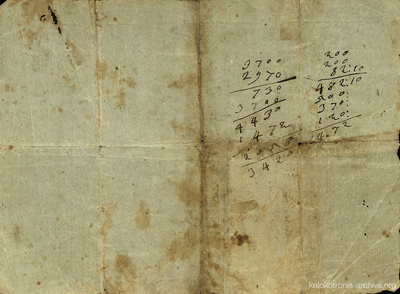 3700
2970
730
3700
4430
1472
3420
200
200
8210
48210
370:
120:
1472
kolokotronis-archive.org